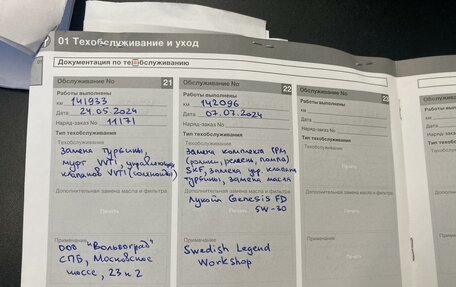 01 Техобслуживание и уход
Документация по техобслуживанию
Обслуживание No 21
Работы выполнены
км 141933
Дата 24.05.2024
Наряд-заказ No 11171
Тип техобслуживания
Техобслуживание
Замена турбины,
муфт VVTi, управляющих
клапанов VVTi (соленоиды)
Дополнительная замена масла и фильтра
Печать
Примечание
ООО "Вольвоград"
СПБ, Московское
шоссе, 23 к 2
Обслуживание No 22
Работы выполнены
км 142096
Дата 07.07.2024
Наряд-заказ No
Тип техобслуживания
Техобслуживание
Замена комплекта ГРМ
(ролики, ремень, помпа)
SKF, замена упр. клапана
турбины, замена масла
Дополнительная замена масла и фильтра
Лукойл Genesis FD
5W-30
Примечание
Swedish Legend
Workshop
Обслуживание No 23
Работы выполнены
км
Дата
Наряд-заказ No
Тип техобслуживания
Техобслуживание
Печать
Дополнительная замена масла и фильтра
Печать
Примечание
Печать